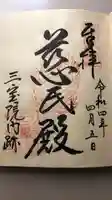 奉拝
令和四年
四月五日
慈氏殿
三宝院内跡